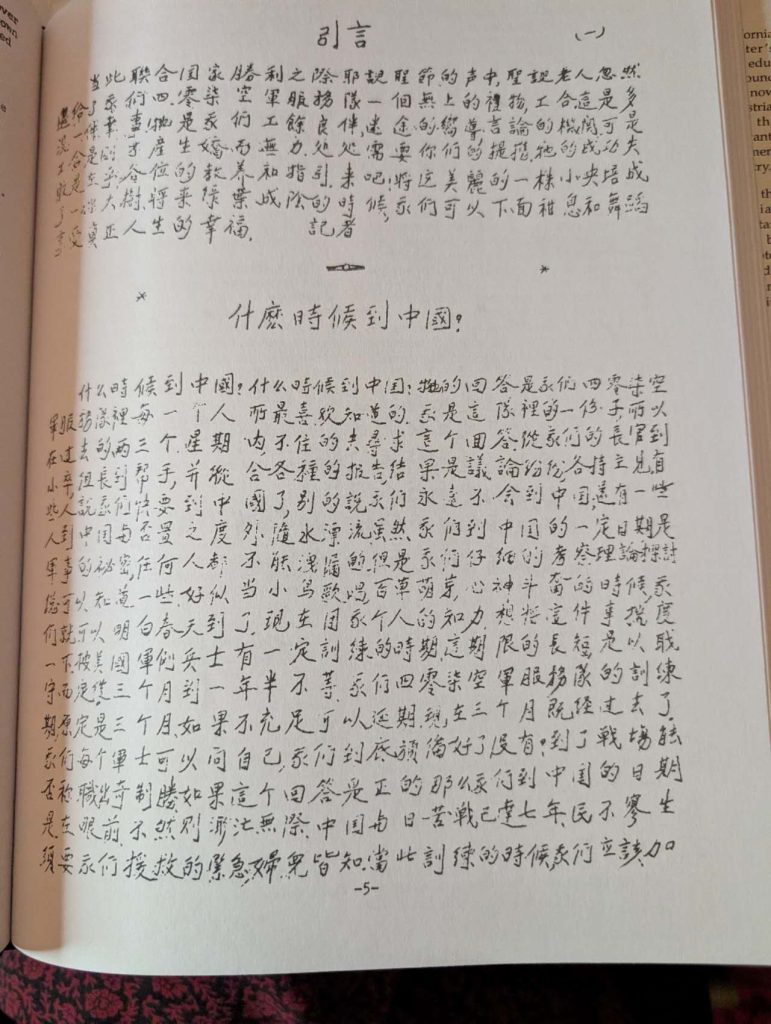 引言 (一)
当此聯合国家勝利之際耶誕聖節的声中,聖誕老人忽然
給了我们四零柒空軍服務隊一個無上的禮物,工合這是多
幸事,牠是我们工餘良伴,迷途的嚮導言論的机関可是
工合是在产生嬌而無力处处需要你们的提携牠的成功失
敗乎各位的教养和指引.来吧!將这美麗的一株小央培成
一大樹,將来绿葉成陰的時候,我们可以下面柑息和舞蹈
享受真正人生的幸福. 記者
什麼時候到中國?
什么時候到中國?什么時候到中国?牠的回答是我们四零柒空
軍服務隊裡每一个人所最喜欢知道的.我是這隊裡的一份子,而以
在过去的两三个星期内,不住的去尋求這个回答.從我们的長官到
小組長到帮手,并搜合各種的报告,结果是議論纷纷,各持主見有
些人說我们快要到中國了,别的說我们永遠不会到中国,還有一些
人到中国与否置之度外,隨水漂流.虽然我们到中国的一定日期是
軍事的祕密,任何人都不能洩漏的,但是我们仔细的考察理論探討
总可以知道一些.好似当小鸟歌唱,百草萌芽,心神斗奋的時候,我
们就可以明白春天到了.现在国家个人的知力,想將這件事揣度
一下.被美國軍例兵士有一定訓練的時期,這期限的長短是以職
守而定.從三个月到一年半不等.我们四零柒空軍服務隊的訓練
期,原定是三个月,如果不充足可以延期,現在三个月既经过去了.
我们每个軍士可以问自己,我们到底預備好了没有?到了戦場能
否称職出奇制勝,如果這个回答是正的,那么我们到中国的日期
是在眼前,不然则渺茫無際.中国与日苦戦已達七年,民不寥生
須要我们援救的緊急,婦兒皆知.當此訓練的時候,我们应該加
-5-